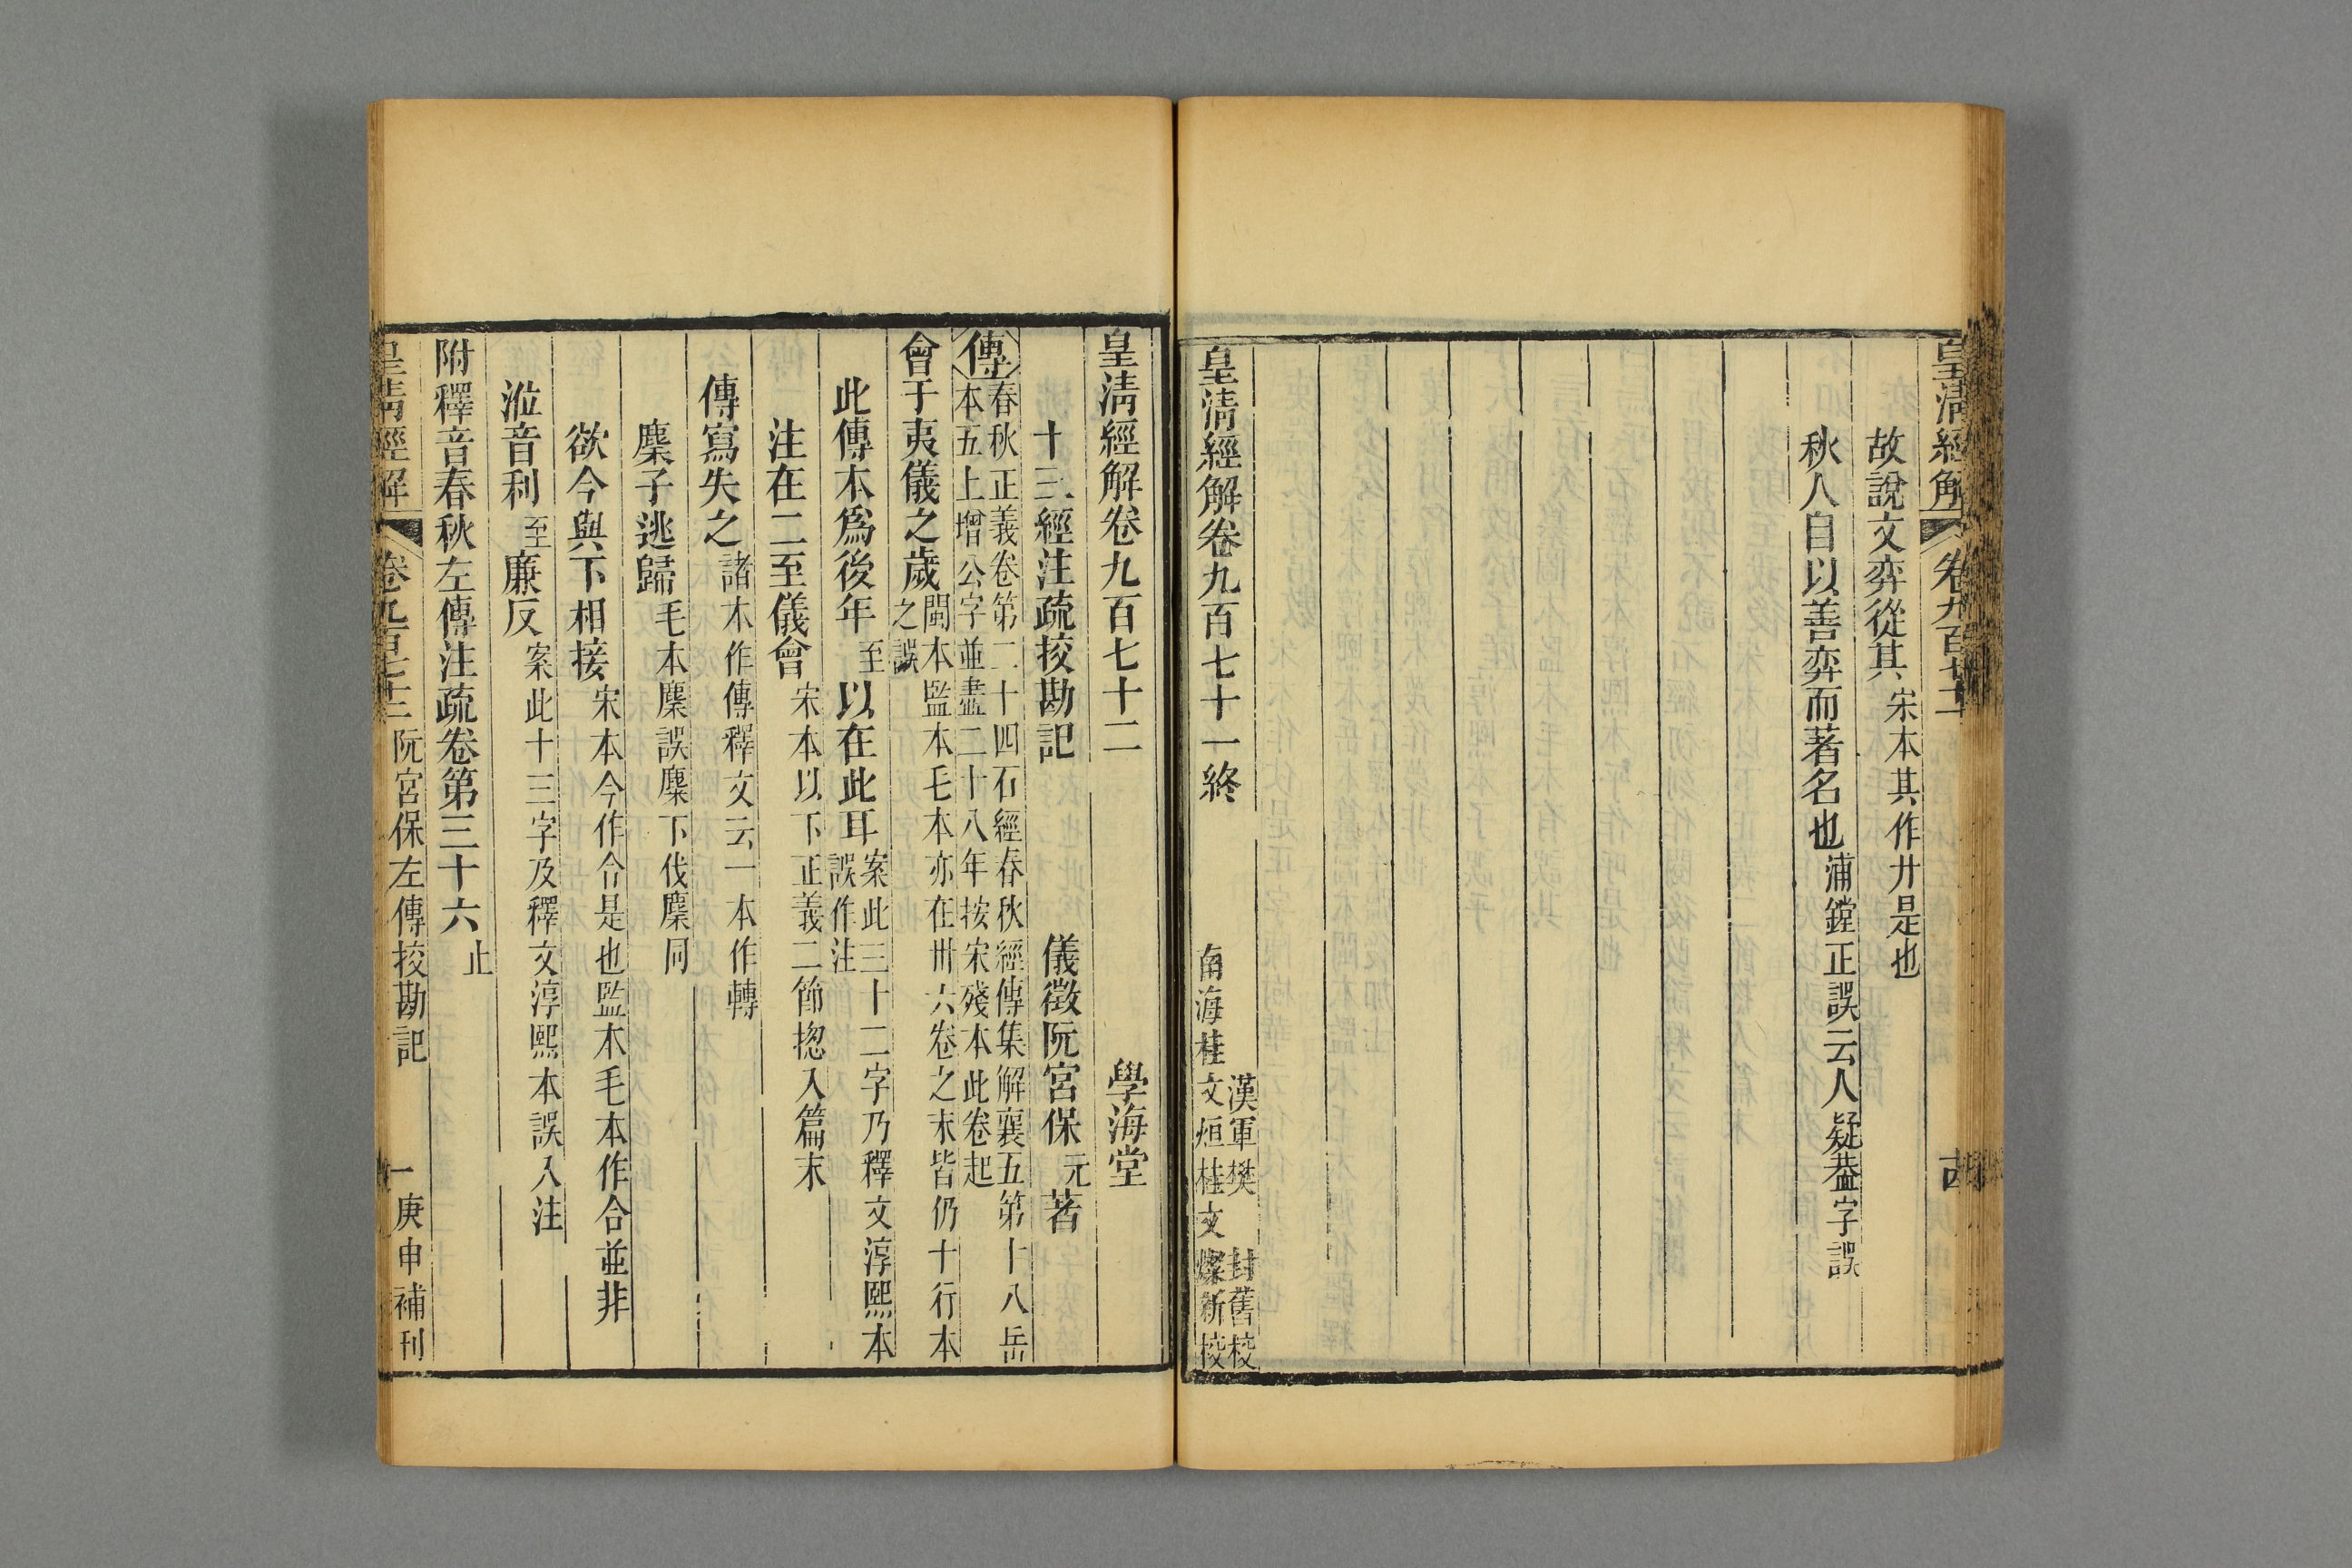 皇清經解 卷九百七十一
故說文弈從其宋本其作廾是也
秋人自以善弈而著名也浦鏜正誤云人疑葢字誤
皇清經解卷九百七十一終
漢軍樊封舊校
南海桂文烜桂文燦新校
皇清經解卷九百七十二 學海堂
十三經注疏挍勘記 儀徵阮宮保元著
傳春秋正義卷第二十四石經春秋經傳集解襄五第十八岳
本五上增公字並盡二十八年按宋殘本此卷起
會于夷儀之歲閩本監本毛本亦在卅六卷之末皆仍十行本
之誤
此傳本爲後年至以在此耳案此三十二字乃釋文淳熙本
誤作注
注在二至儀會宋本以下正義二節揔入篇末
傳寫失之諸本作傳釋文云一本作轉
麇子逃歸毛本麇誤麋下伐麇同
欲今與下相接宋本今作令是也監本毛本作合並非
涖音利至廉反案此十三字及釋文淳熙本誤入注
附釋音春秋左傳注疏卷第三十六止
皇清經解 卷九百七十二 阮宮保左傳挍勘記 一 庚申補刊